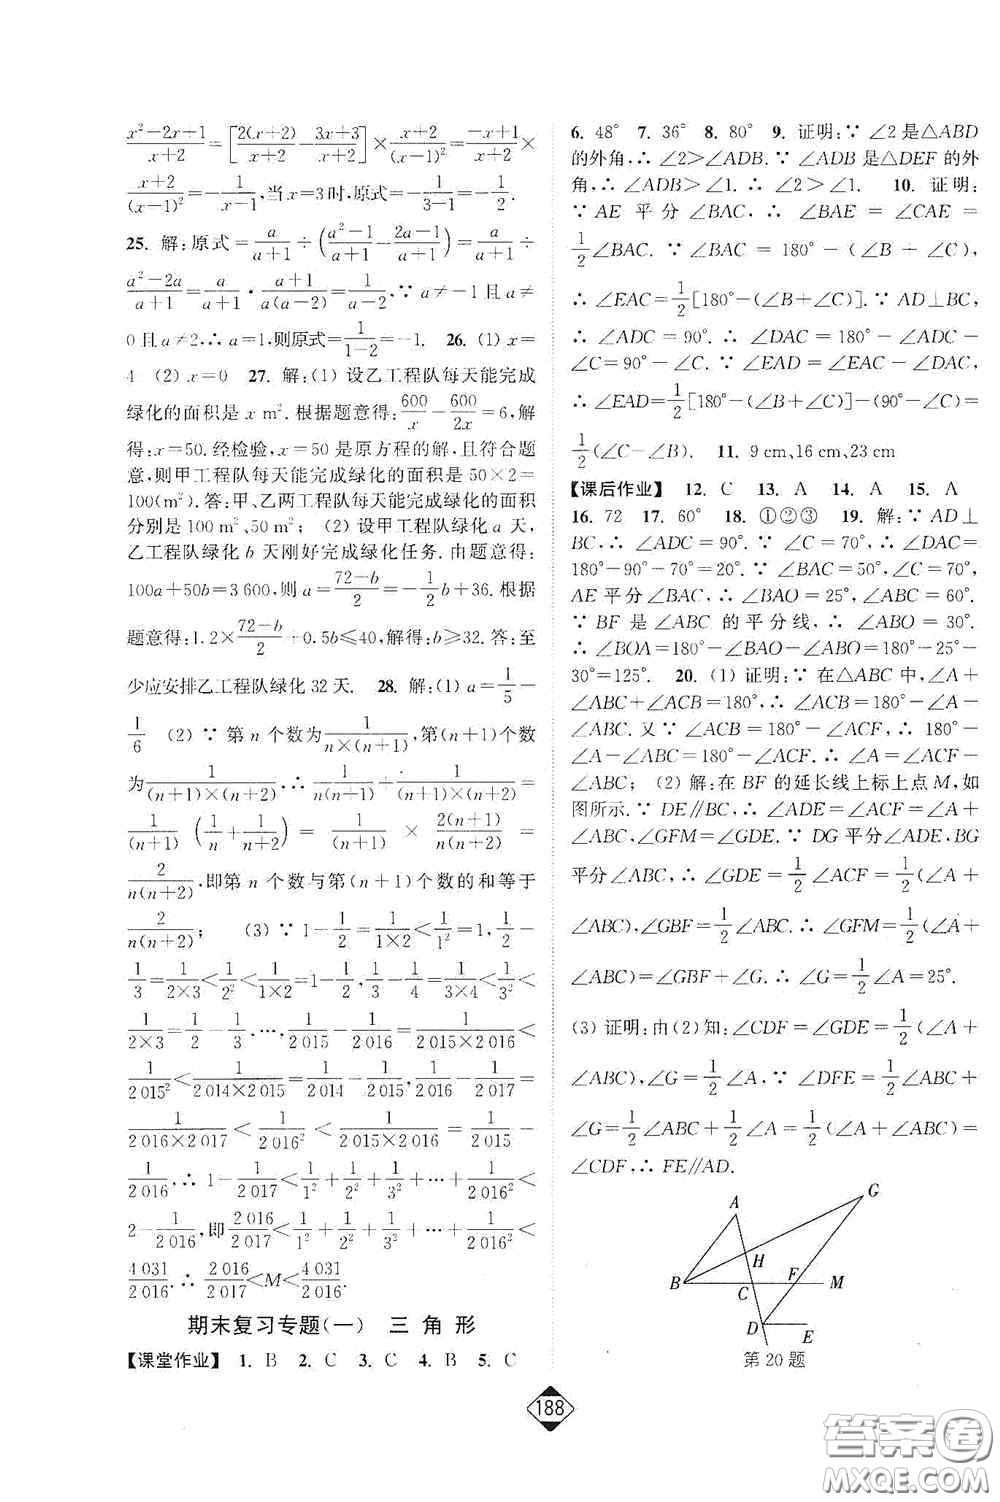 x²－2x＋1/x＋2＝[2(x＋2)/x＋2－3x＋3/x＋2]×x＋2/(x－1)²＝－x＋1/x＋2×
x＋2/(x－1)²＝－1/x－1,当 x＝3时,原式＝－1/3－1＝－1/2.
25. 解:原式＝a/a＋1÷(a²－1/a＋1－2a－1/a＋1)＝a/a＋1÷
a²－2a/a＋1＝a/a＋1·a＋1/a(a－2)＝1/a－2,∵ a≠－1且a≠
0且a≠2,∴ a＝1,则原式＝1/1－2＝－1. 26. (1) x＝
4 (2) x＝0 27. 解:(1) 设乙工程队每天能完成
绿化的面积是 x m². 根据题意得:600/x－600/2x＝6,解
得:x＝50. 经检验,x＝50 是原方程的解,且符合题
意,则甲工程队每天能完成绿化的面积是 50×2＝
100(m²). 答:甲、乙两工程队每天能完成绿化的面积
分别是 100 m²、50 m²; (2) 设甲工程队绿化 a 天,
乙工程队绿化 b 天刚好完成绿化任务. 由题意得:
100a＋50b＝3 600,则 a＝72－b/2＝－1/2b＋36. 根据
题意得:1.2×72－b/2＋0.5b≤40,解得:b≥32. 答:至
少应安排乙工程队绿化 32 天. 28. 解:(1) a＝1/5－
1/6 (2) ∵ 第 n 个数为1/n×(n＋1),第(n＋1)个数
为1/(n＋1)×(n＋2),∴ 1/n(n＋1)＋1/(n＋1)×(n＋2)＝
1/(n＋1)(1/n＋1/n＋2)＝1/(n＋1)×2(n＋1)/n(n＋2)＝
2/n(n＋2),即第 n 个数与第(n＋1)个数的和等于
2/n(n＋2); (3) ∵ 1－1/2＝1/1×2＜1/1²＝1,1/2－
1/3＝1/2×3＜1/2²＜1/1×2＝1－1/2,1/3－1/4＝1/3×4＜1/3²＜
1/2×3＝1/2－1/3…,1/2 015－1/2 016＝1/2 015×2 016＜
1/2 015²＜1/2 014×2 015＝1/2 014－1/2 015,1/2 016－1/2 017＝
1/2 016×2 017＜1/2 016²＜1/2 015×2 016＝1/2 015－
1/2 016,∴ 1－1/2 017＜1/1²＋1/2²＋1/3²＋…＋1/2 016²＜
2－1/2 016,即2 016/2 017＜1/1²＋1/2²＋1/3²＋…＋1/2 016²＜
4 031/2 016. ∴ 2 016/2 017＜M＜4 031/2 016.
期末复习专题(一) 三 角 形
【课堂作业】 1. B 2. C 3. C 4. B 5. C
6. 48° 7. 36° 8. 80° 9. 证明:∵ ∠2是△ABD
的外角,∴ ∠2＞∠ADB. ∵ ∠ADB是△DEF的外
角,∴ ∠ADB＞∠1. ∴ ∠2＞∠1. 10. 证明:
∵ AE 平分∠BAC,∴ ∠BAE＝∠CAE＝
1/2∠BAC. ∵ ∠BAC＝180°－(∠B＋∠C),
∴ ∠EAC＝1/2[180°－(∠B＋∠C)]. ∵ AD⊥BC,
∴ ∠ADC＝90°. ∴ ∠DAC＝180°－∠ADC－
∠C＝90°－∠C. ∵ ∠EAD＝∠EAC－∠DAC,
∴ ∠EAD＝1/2[180°－(∠B＋∠C)]－(90°－∠C)＝
1/2(∠C－∠B). 11. 9 cm,16 cm,23 cm
【课后作业】 12. C 13. A 14. A 15. A
16. 72 17. 60° 18. ①②③ 19. 解:∵ AD⊥
BC,∴ ∠ADC＝90°. ∵ ∠C＝70°,∴ ∠DAC＝
180°－90°－70°＝20°. ∵ ∠BAC＝50°,∠C＝70°,
AE平分∠BAC,∴ ∠BAO＝25°,∠ABC＝60°.
∵ BF 是 ∠ABC 的平分线,∴ ∠ABO＝30°.
∴ ∠BOA＝180°－∠BAO－∠ABO＝180°－25°－
30°＝125°. 20. (1) 证明:∵ 在△ABC中,∠A＋
∠ABC＋∠ACB＝180°,∴ ∠ACB＝180°－∠A－
∠ABC. 又∵ ∠ACB＝180°－∠ACF,∴ 180°－
∠A－∠ABC＝180°－∠ACF. ∴ ∠A＝∠ACF－
∠ABC; (2) 解:在BF的延长线上标上点M,如
图所示. ∵ DE∥BC,∴ ∠ADE＝∠ACF＝∠A＋
∠ABC,∠GFM＝∠GDE. ∵ DG平分∠ADE,BG
平分∠ABC,∴ ∠GDE＝1/2∠ACF＝1/2(∠A＋
∠ABC),∠GBF＝1/2∠ABC. ∴ ∠GFM＝1/2(∠A＋
∠ABC)＝∠GBF＋∠G. ∴ ∠G＝1/2∠A＝25°.
(3) 证明:由(2)知:∠CDF＝∠GDE＝1/2(∠A＋
∠ABC),∠G＝1/2∠A,∵ ∠DFE＝1/2∠ABC＋
∠G＝1/2∠ABC＋1/2∠A＝1/2(∠A＋∠ABC)＝
∠CDF,∴ FE∥AD.
A
G
H
B
C
F
M
D
E
第20题
188
答案圈
MXQE.COM